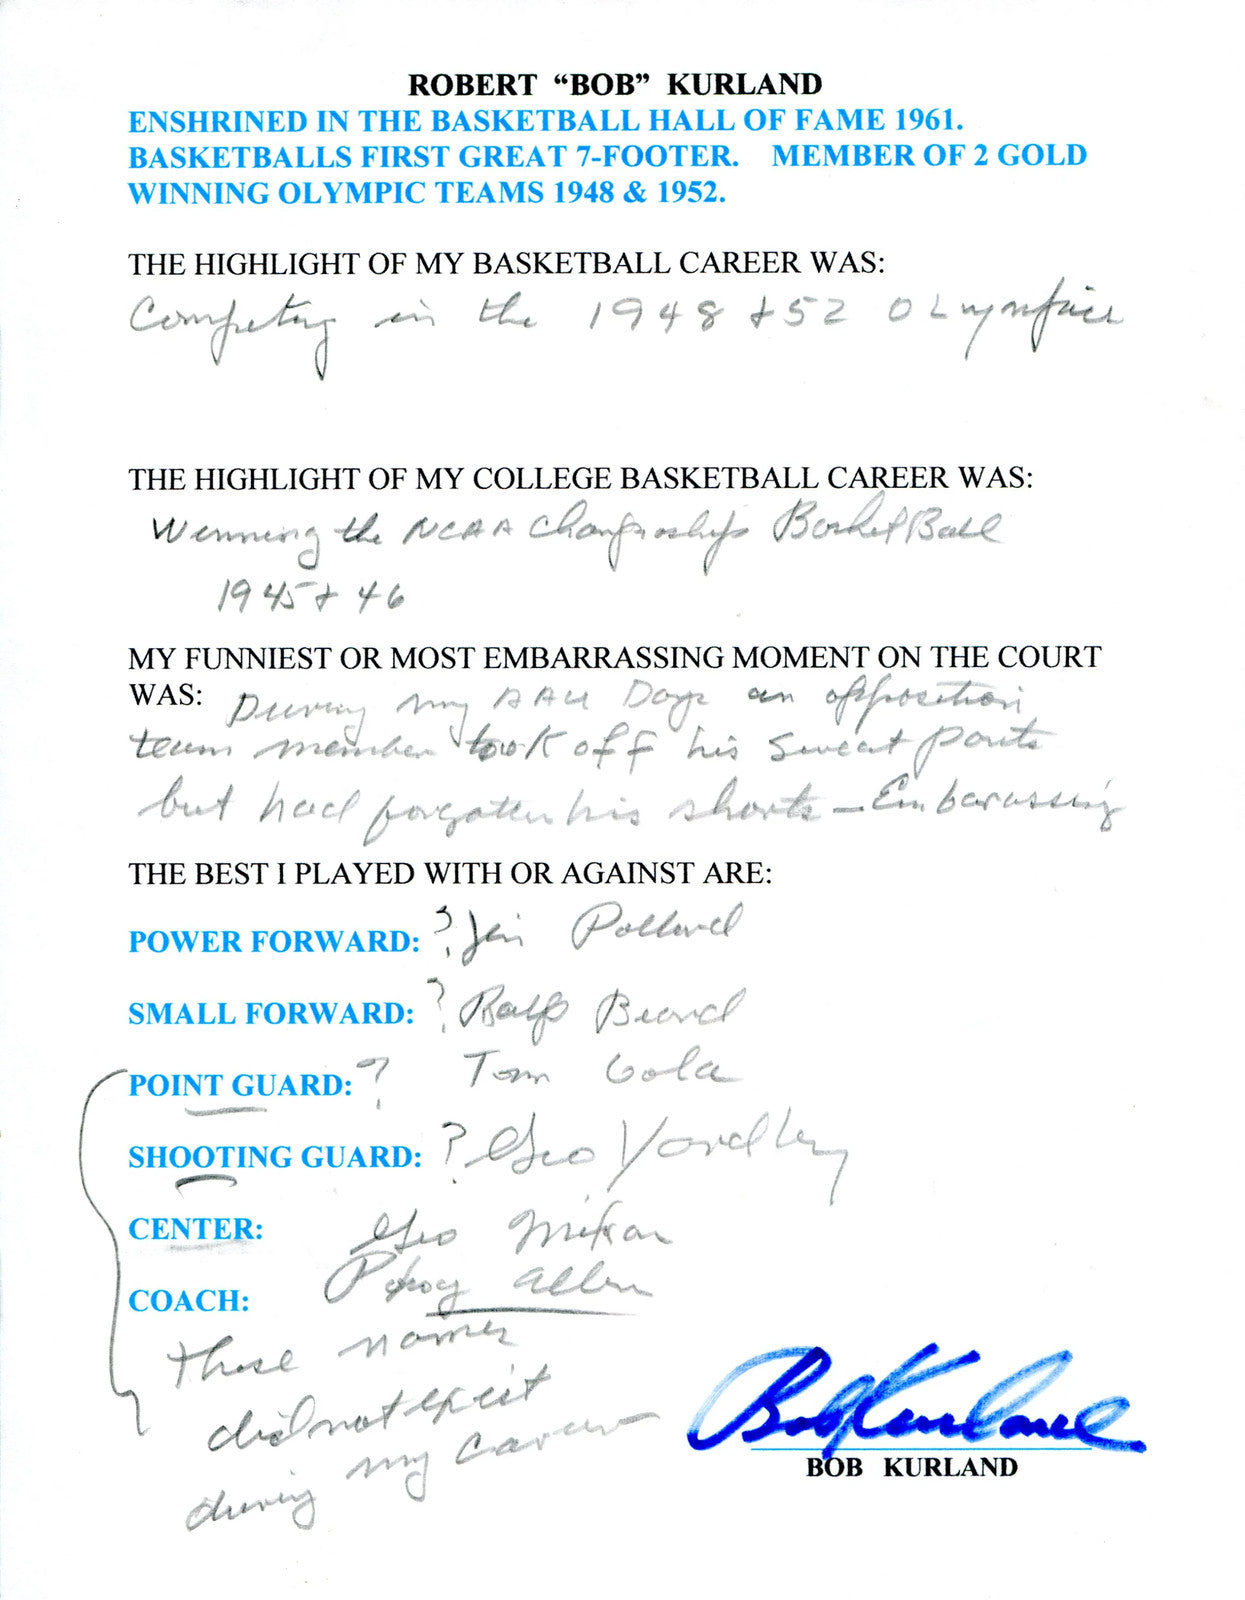 ROBERT “BOB” KURLAND
ENSHRINED IN THE BASKETBALL HALL OF FAME 1961.
BASKETBALLS FIRST GREAT 7-FOOTER. MEMBER OF 2 GOLD
WINNING OLYMPIC TEAMS 1948 & 1952.
THE HIGHLIGHT OF MY BASKETBALL CAREER WAS:
Competing in the 1948 + 52 OLympics
THE HIGHLIGHT OF MY COLLEGE BASKETBALL CAREER WAS:
Winning the NCAA Championships BasketBall
1945 + 46
MY FUNNIEST OR MOST EMBARRASSING MOMENT ON THE COURT
WAS: During my AAU Days an opposition
team member took off his sweat pants
but had forgotten his shorts – Embarassing
THE BEST I PLAYED WITH OR AGAINST ARE:
POWER FORWARD: ? Jim Pollard
SMALL FORWARD: ? Ralph Beard
POINT GUARD: ? Tom Gola
SHOOTING GUARD: ? Geo Yardley
CENTER: Geo Mikan
COACH: Phog Allen
These names
did not exist
during my career
Bob Kurland
BOB KURLAND